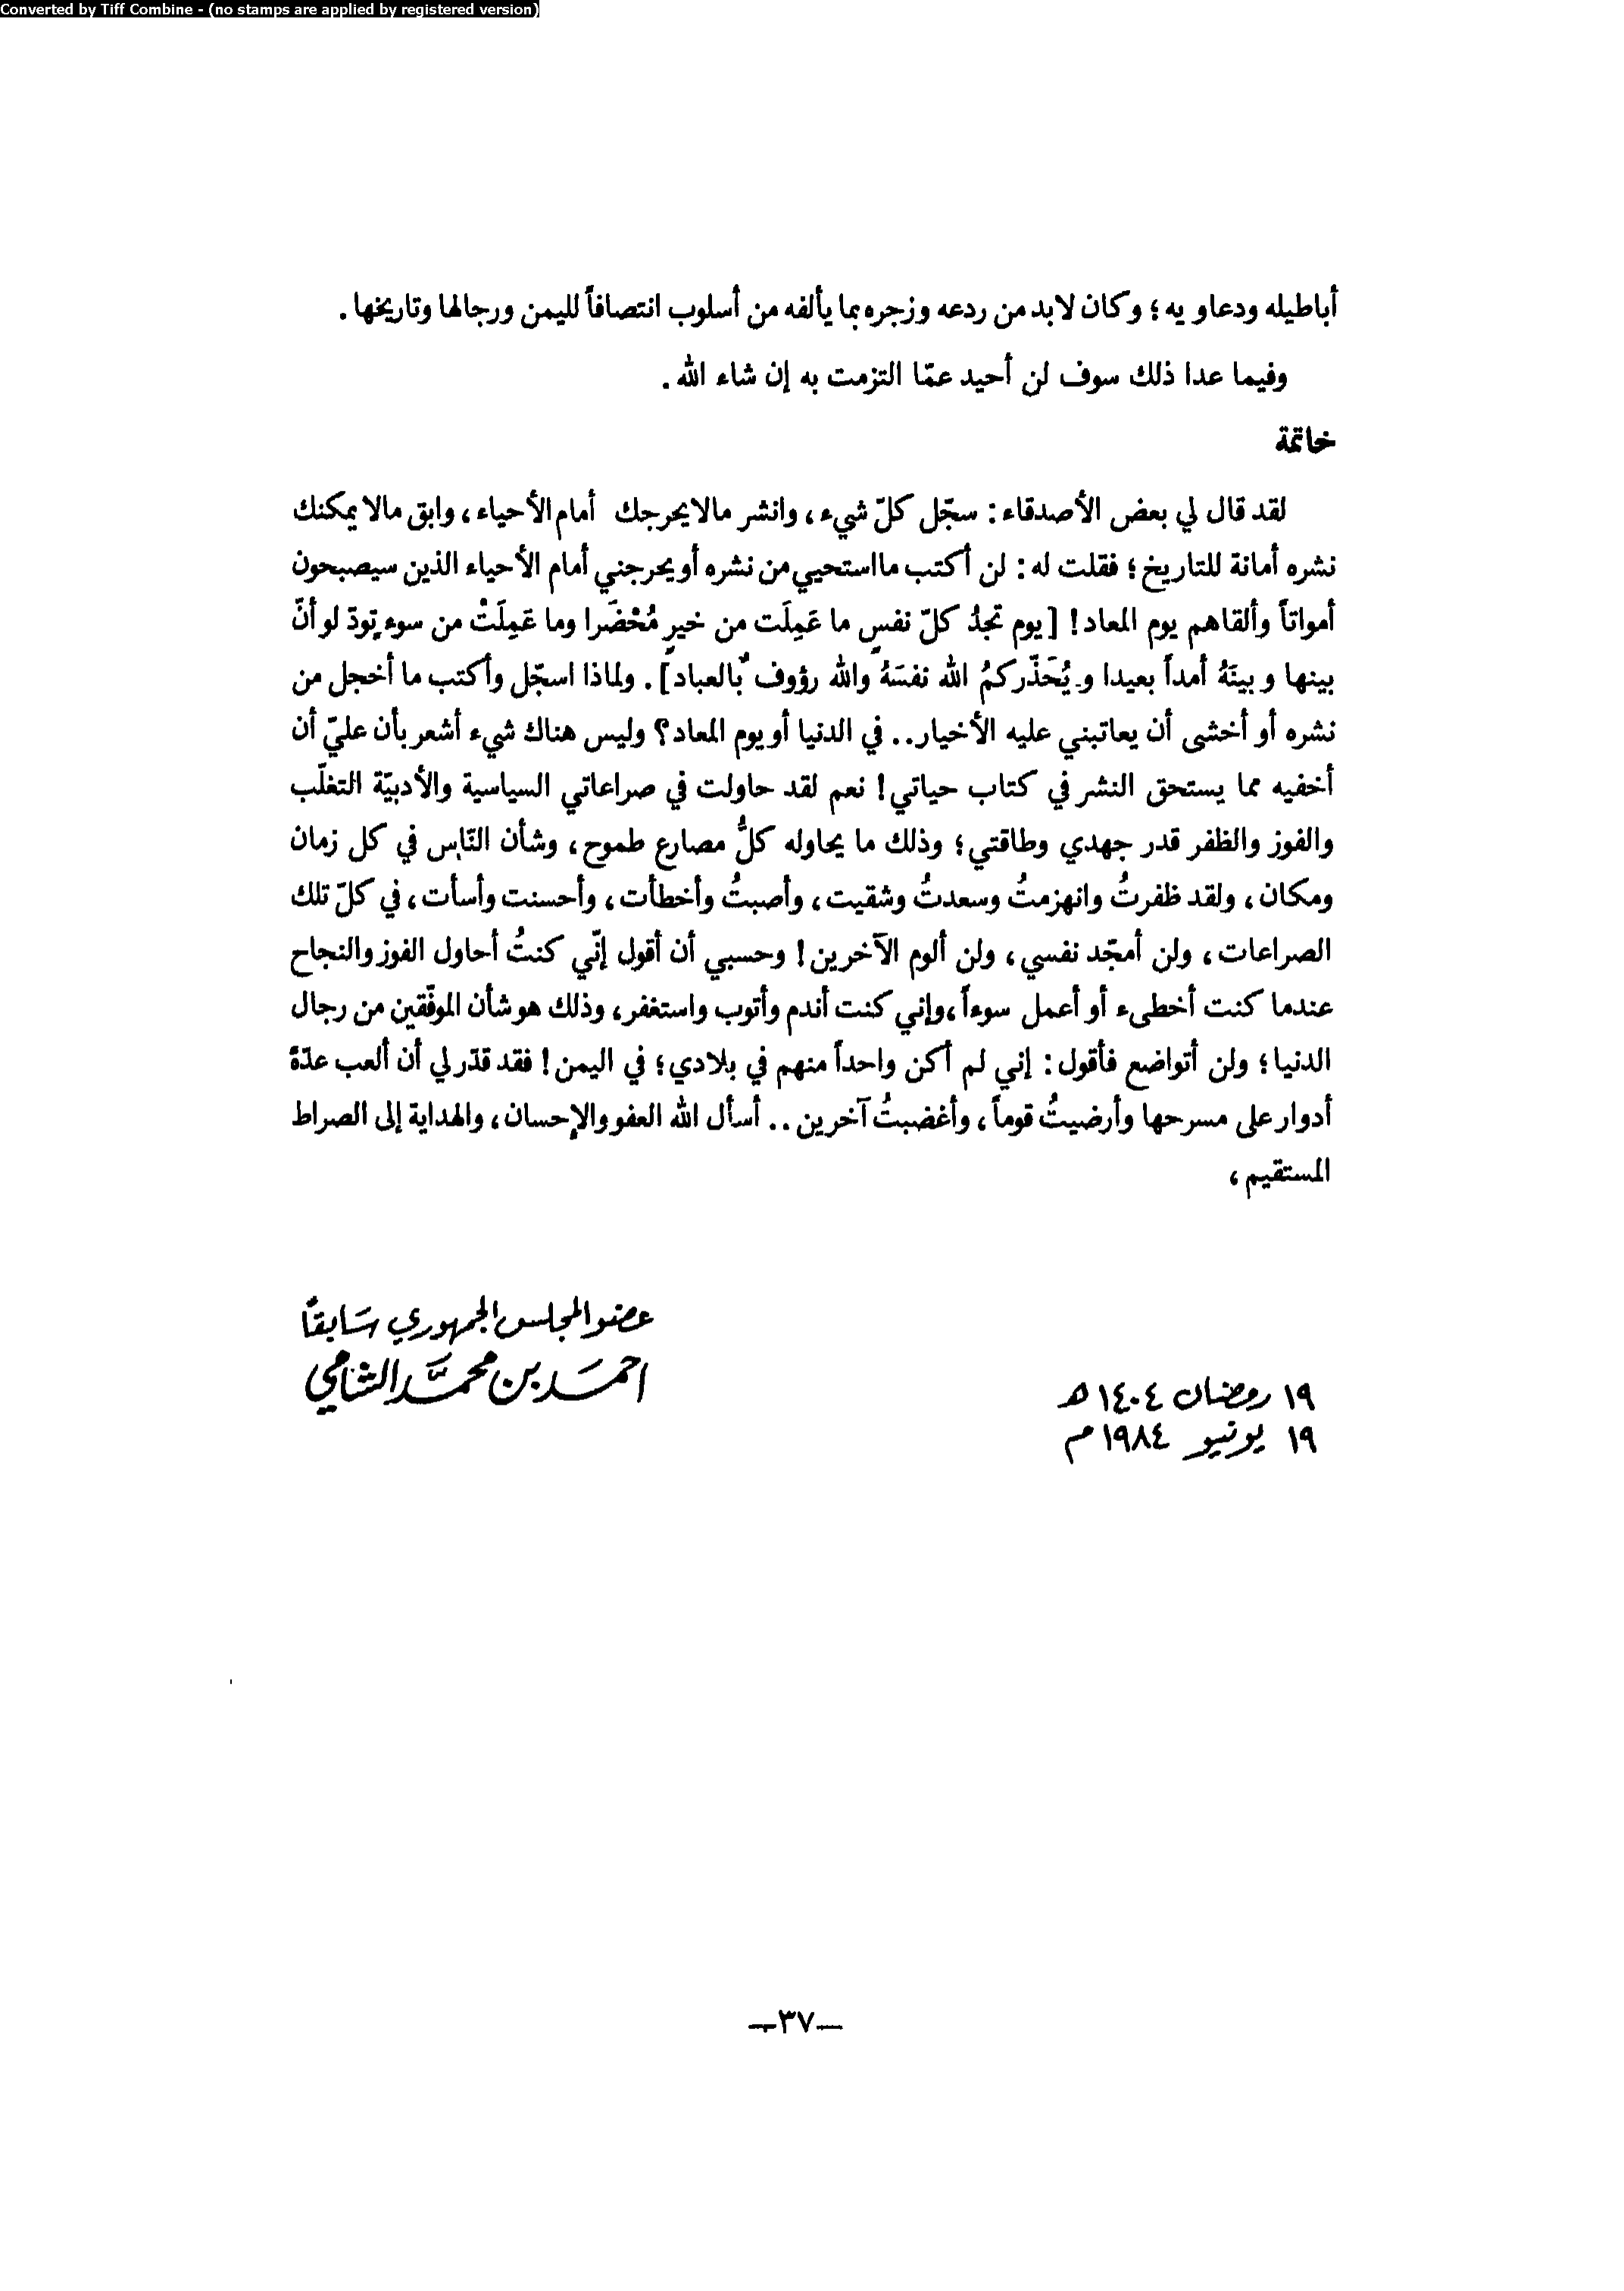 Converted by Tiff Combine - (no stamps are applied by registered version)
أباطيله ودعاويه ؛ وكان لابد من ردعه وزجره بما يألفه من أسلوب انتصافاً لليمن ورجالها وتاريخها .
وفيما عدا ذلك سوف لن أحيد عمّا التزمت به إن شاء الله .
خاتمة
لقد قال لي بعض الأصدقاء : سجّل كلّ شيء ، وانشر مالا يحرجك أمام الأحياء ، وابق مالا يمكنك
نشره أمانة للتاريخ ؛ فقلت له : لن أكتب ما استحيي من نشره أو يحرجني أمام الأحياء الذين سيصبحون
أمواتاً وألقاهم يوم المعاد ! [ يوم تجدُ كلّ نفسٍ ما عَمِلَت من خيرٍ مُحْضَرا وما عَمِلَتْ من سوءٍ تودّ لو أنّ
بينها وبينَهُ أمداً بعيدا ويُحَذّركمُ الله نفسَهُ والله رؤوفٌ بالعباد ] . ولماذا اسجّل وأكتب ما أخجل من
نشره أو أخشى أن يعاتبني عليه الأخيار .. في الدنيا أو يوم المعاد ؟ وليس هناك شيء أشعر بأن عليّ أن
أخفيه مما يستحق النشر في كتاب حياتي ! نعم لقد حاولت في صراعاتي السياسية والأدبيّة التغلّب
والفوز والظفر قدر جهدي وطاقتي ؛ وذلك ما يحاوله كلُّ مصارع طموح ، وشأن النّاس في كل زمان
ومكان ، ولقد ظفرتُ وانهزمتُ وسعدتُ وشقيت ، وأصبتُ وأخطأت ، وأحسنت وأسأت ، في كلّ تلك
الصراعات ، ولن أمجّد نفسي ، ولن ألوم الآخرين ! وحسبي أن أقول إنّي كنتُ أحاول الفوز والنجاح
عندما كنت أخطىء أو أعمل سوءاً ، وإني كنت أندم وأتوب واستغفر ، وذلك هو شأن الموفّقين من رجال
الدنيا ؛ ولن أتواضع فأقول : إني لم أكن واحداً منهم في بلادي ؛ في اليمن ! فقد قدّر لي أن ألعب عدّة
أدوار على مسرحها وأرضيتُ قوماً ، وأغضبتُ آخرين .. أسأل الله العفو والإحسان ، والهداية إلى الصراط
المستقيم ،
عضو المجلس الجمهوري سَابقاً
احمَد بن محمَّد الشامي
١٩ رمضان ١٤٠٤ هـ
١٩ يونيو ١٩٨٤ م
—٣٧—